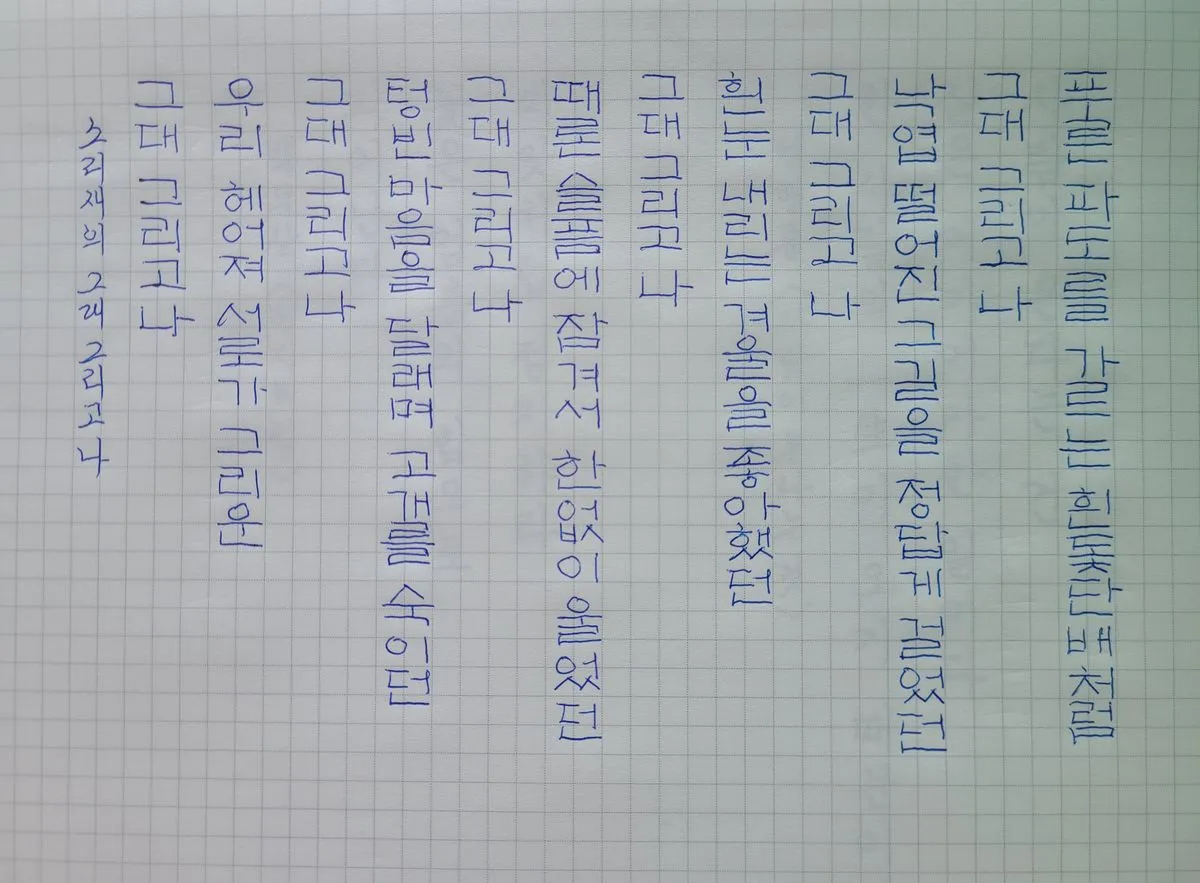 푸른 파도를 가르는 흰돛단배처럼
그대 그리고 나
낙엽 떨어진 그길을 정답게 걸었던
그대 그리고 나
흰눈 내리는 겨울을 좋아했던
그대 그리고 나
때론 슬픔에 잠겨서 한없이 울었던
그대 그리고 나
텅빈 마음을 달래며 고개를 숙이던
그대 그리고 나
우린 헤어져 서로가 그리운
그대 그리고 나
소리새의 그대 그리고 나